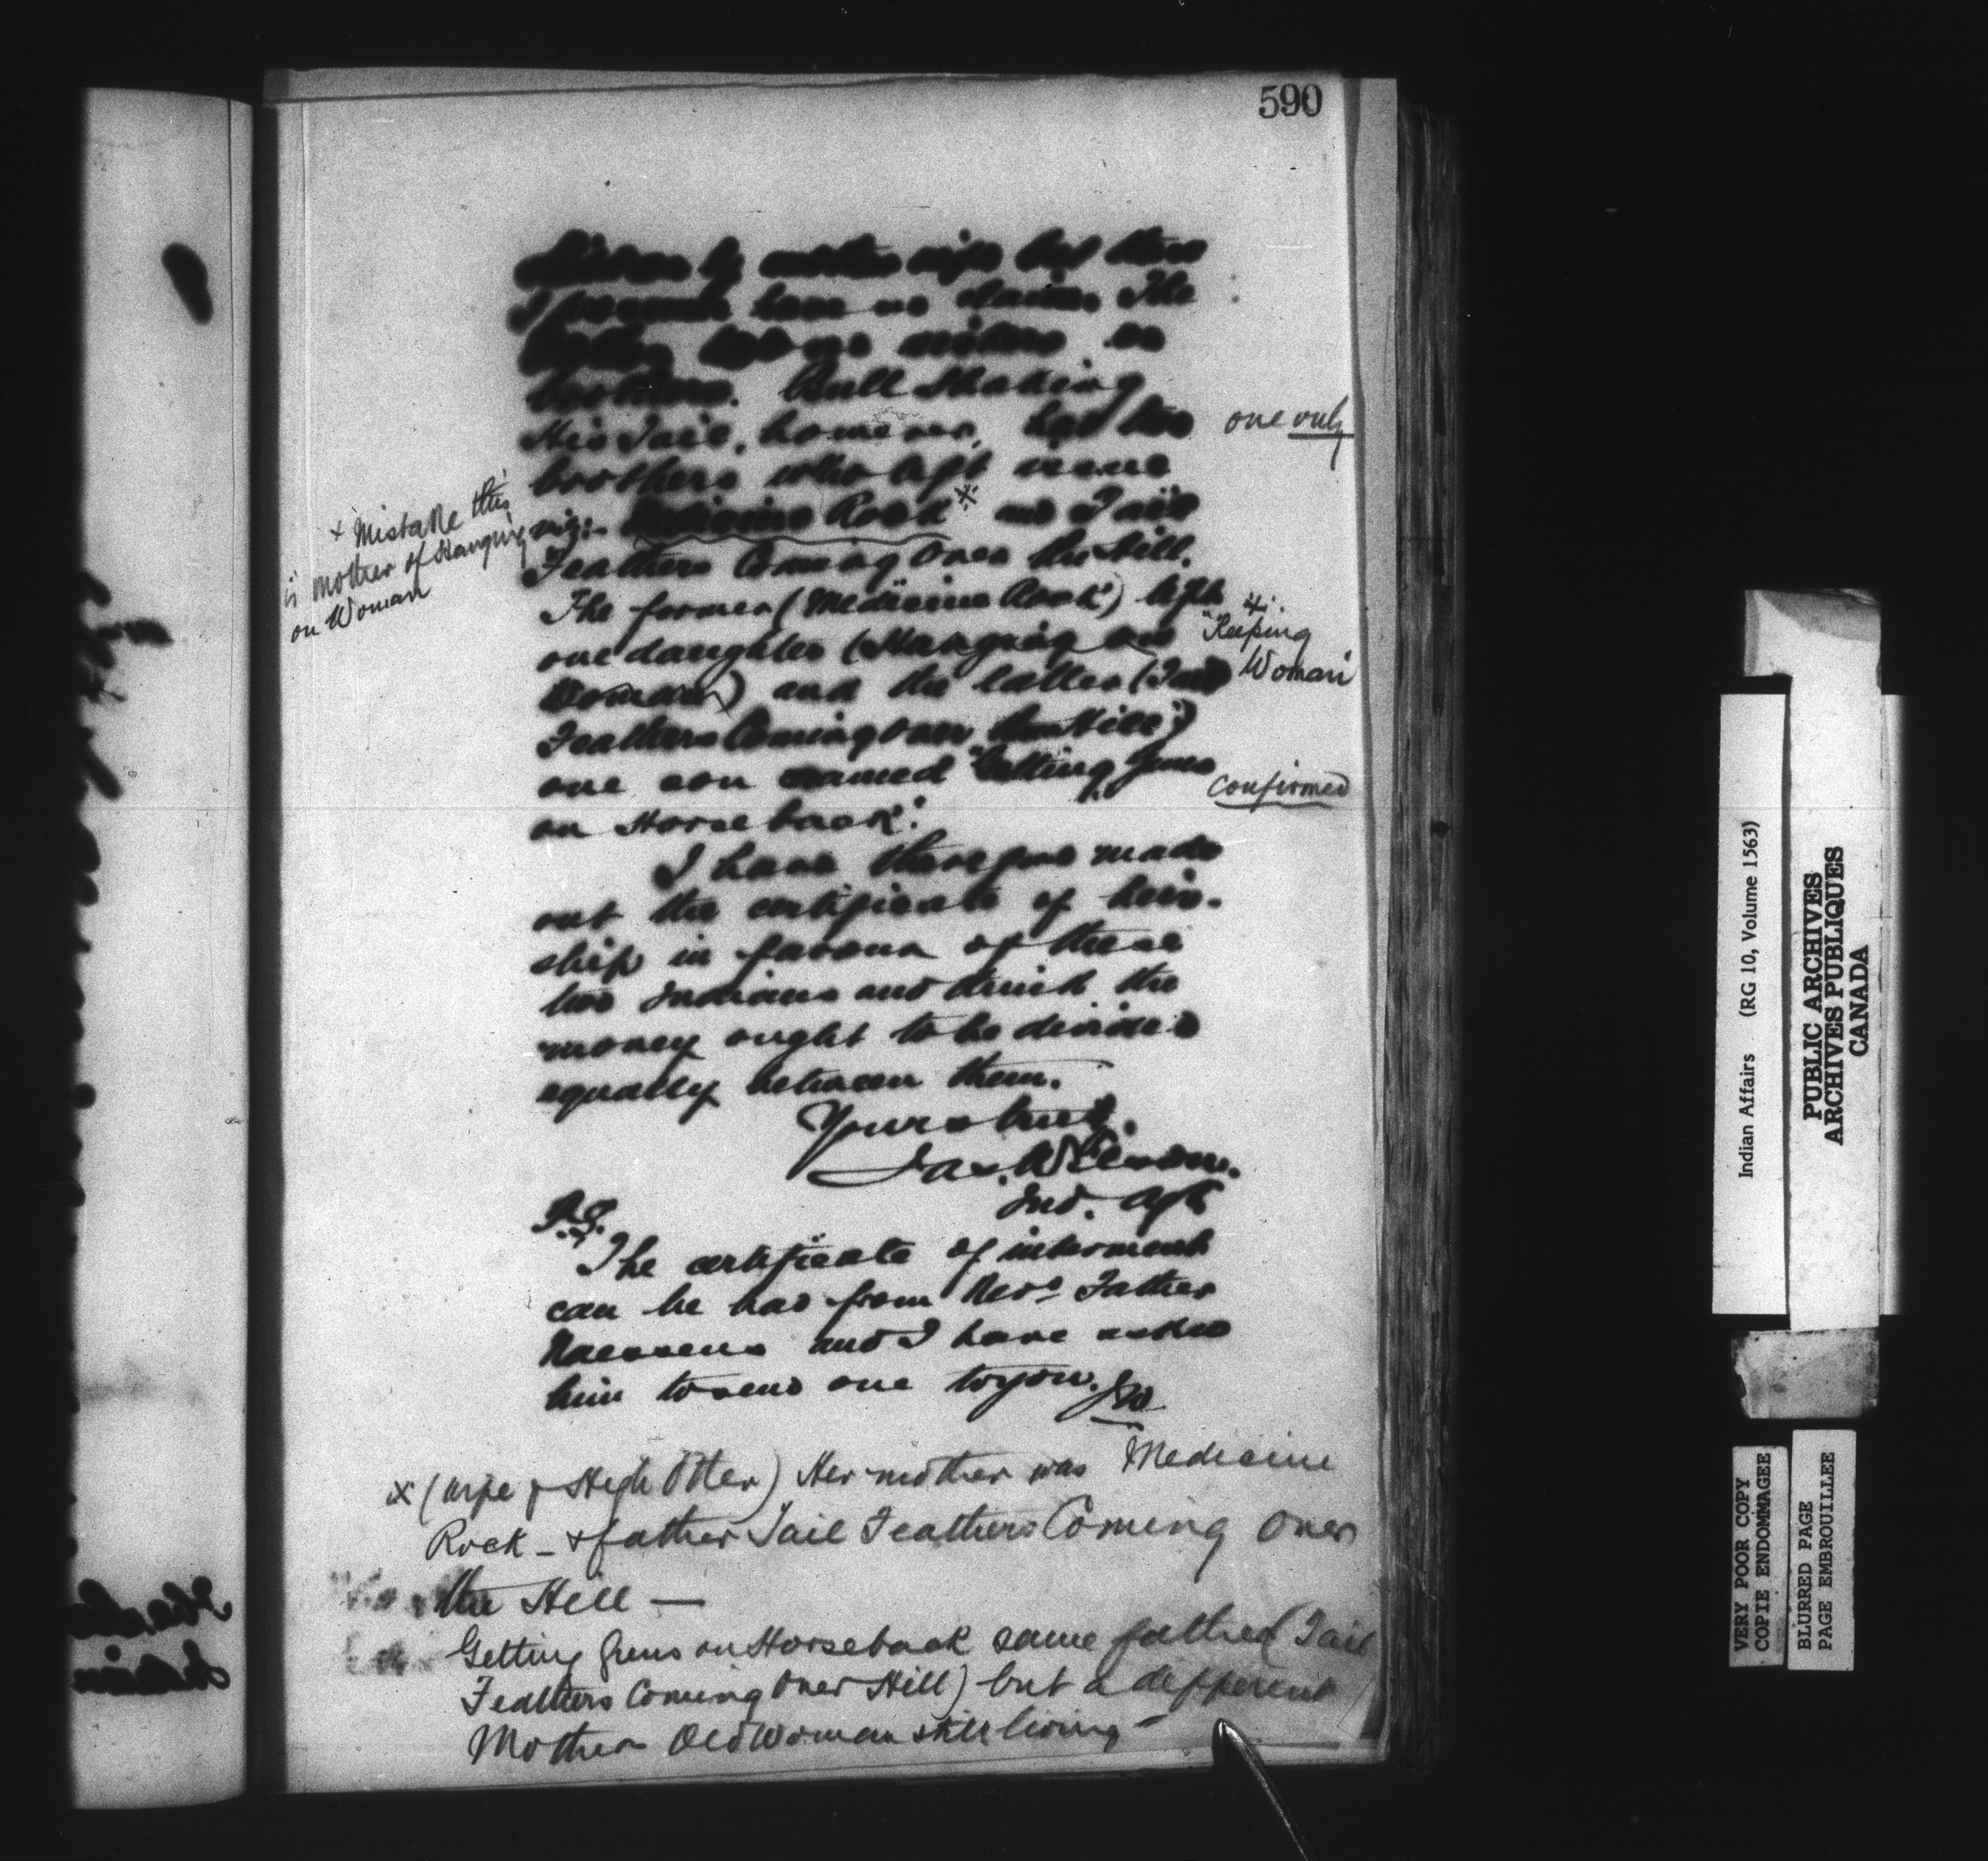 590
children by another wife but these
I presume have no claim. The
had no sisters or
brothers. Bull Shaking
His Tail, however, had two
one only
brothers who left issue
viz:- Medicine Rock x and Tail
x Mistake this
is mother of Hanging
on Woman
Feathers Coming Over the Hill.
The former (Medicine Rock) left
one daughter (Hanging on
Woman) and the latter (Tail
"Keeping
Woman"
Feathers Coming Over the Hill)
one son named "Getting Guns
confirmed
on Horseback".
I have therefore made
out the certificate of heir-
ship in favour of these
two Indians and think the
money ought to be divided
equally between them.
Yours truly.
Jas. Wilson.
Ind. Agt
P.S.
The certificate of interment
can be had from Revd Father
Naessens and I have asked
him to send one to you. JW
x (wife of High Otter) Her mother was Medicine
Rock - & father Tail Feathers Coming Over
the Hill —
Getting Guns on Horseback same father (Tail
Feathers Coming Over Hill) but a different
Mother Old Woman still living -
Indian Affairs (RG 10, Volume 1563)
PUBLIC ARCHIVES
ARCHIVES PUBLIQUES
CANADA
VERY POOR COPY
COPIE ENDOMMAGEE
BLURRED PAGE
PAGE EMBROUILLEE